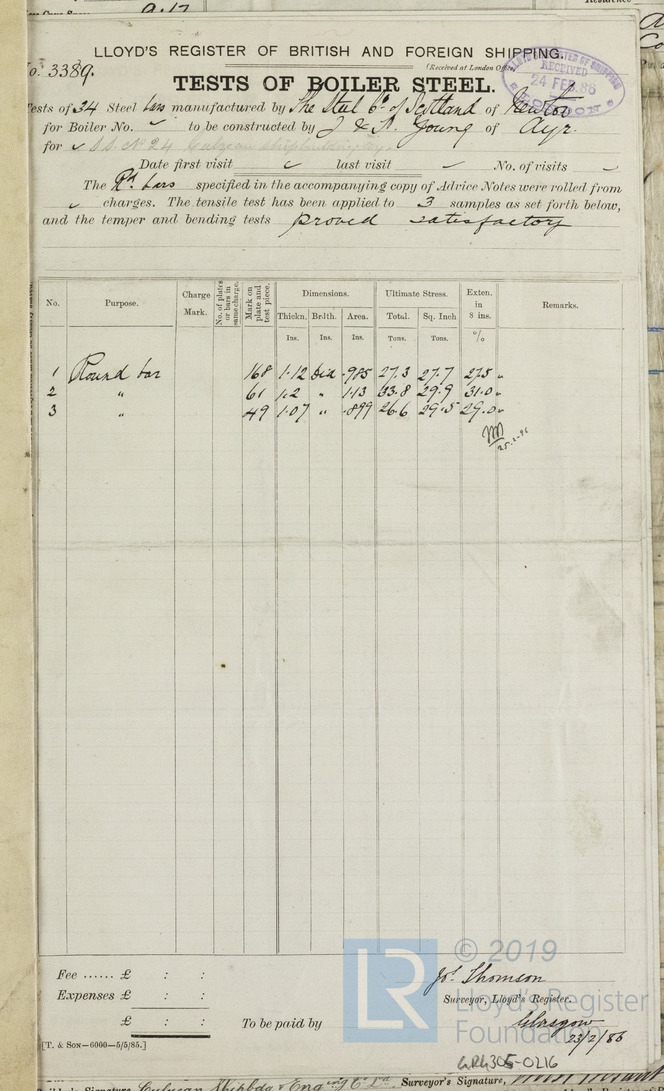 LLOYD'S REGISTER OF BRITISH AND FOREIGN SHIPPING.
No. 3389.
(Received at London Office
RECEIVED
24 FEB. 86
TESTS OF BOILER STEEL.
Tests of 34 Steel bars manufactured by The Steel Co. of Scotland of Newton
for Boiler No. ✓ to be constructed by J & A. Young of Ayr.
for ✓ S.S. No 24 Culzean Shipbuilding
Date first visit ✓ last visit ✓ No. of visits ✓
The Rd bars specified in the accompanying copy of Advice Notes were rolled from
✓ charges. The tensile test has been applied to 3 samples as set forth below,
and the temper and bending tests proved satisfactory
No. Purpose. Charge Mark. No. of plates or bars in same charge. Mark on plate and test piece. Dimensions. Ultimate Stress. Exten. in 8 ins. Remarks.
Thickn. Brdth. Area. Total. Sq. Inch
Ins. Ins. Ins. Tons. Tons. %
1 Round bar 168 1.12 dia .985 27.3 27.7 27.5 "
2 " 61 1.2 " 1.13 33.8 29.9 31.0 "
3 " 49 1.07 " .899 26.6 29.5 29.0 "
25.2.86
Fee ...... £ : :
Expenses £ : :
£ : :
To be paid by
Jos. Thomson
Surveyor, Lloyd's Register.
Glasgow
23/2/86
[T. & SON—6000—5/5/85.]
LR
© 2019
Lloyd's Register
Foundation
GRG305-0216
Surveyor's Signature,